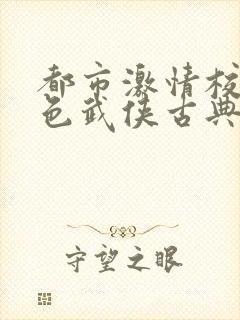 都市激情校
色武侠古典
守望之眼